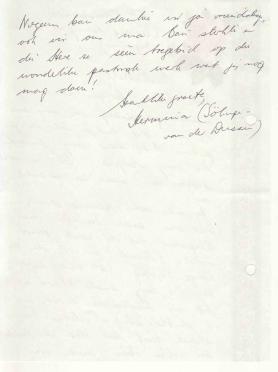 Nogeens baie dankie vir jou vriendelikh
ook vir ons ma. Dan slotte in
die Here se seën toegebid op die
wondelike pastorale werk wat jy nog
mag doen!
Hartlike groete,
Herminia (Söhnge-
van der Dussen)